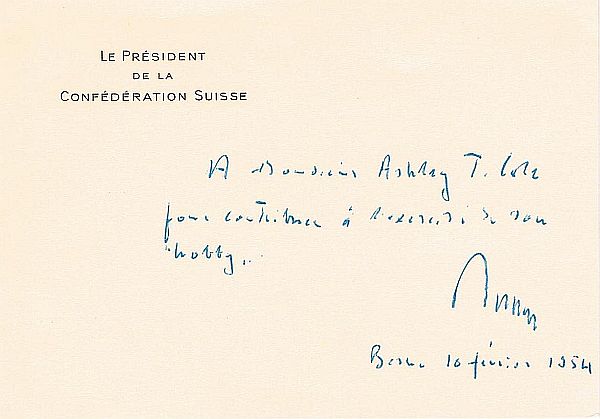 LE PRÉSIDENT
DE LA
CONFÉDÉRATION SUISSE
A Monsieur Ashley T. Cole
pour contribuer à l'exercice de son
"hobby"..
Berne 10 février 1954